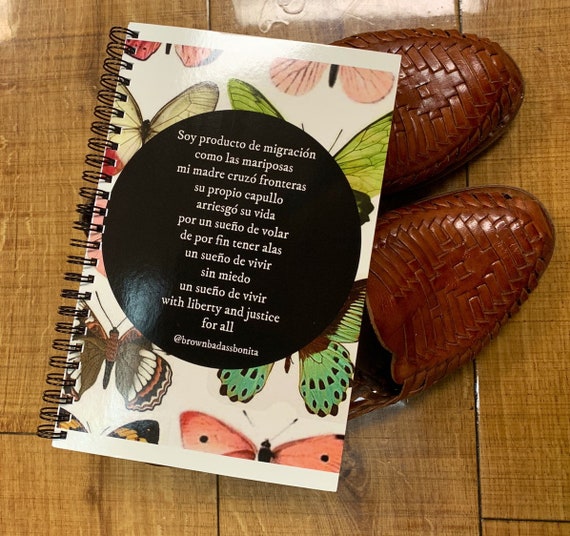 Soy producto de migración
como las mariposas
mi madre cruzó fronteras
su propio capullo
arriesgó su vida
por un sueño de volar
de por fin tener alas
un sueño de vivir
sin miedo
un sueño de vivir
with liberty and justice
for all
@brownbadassbonita